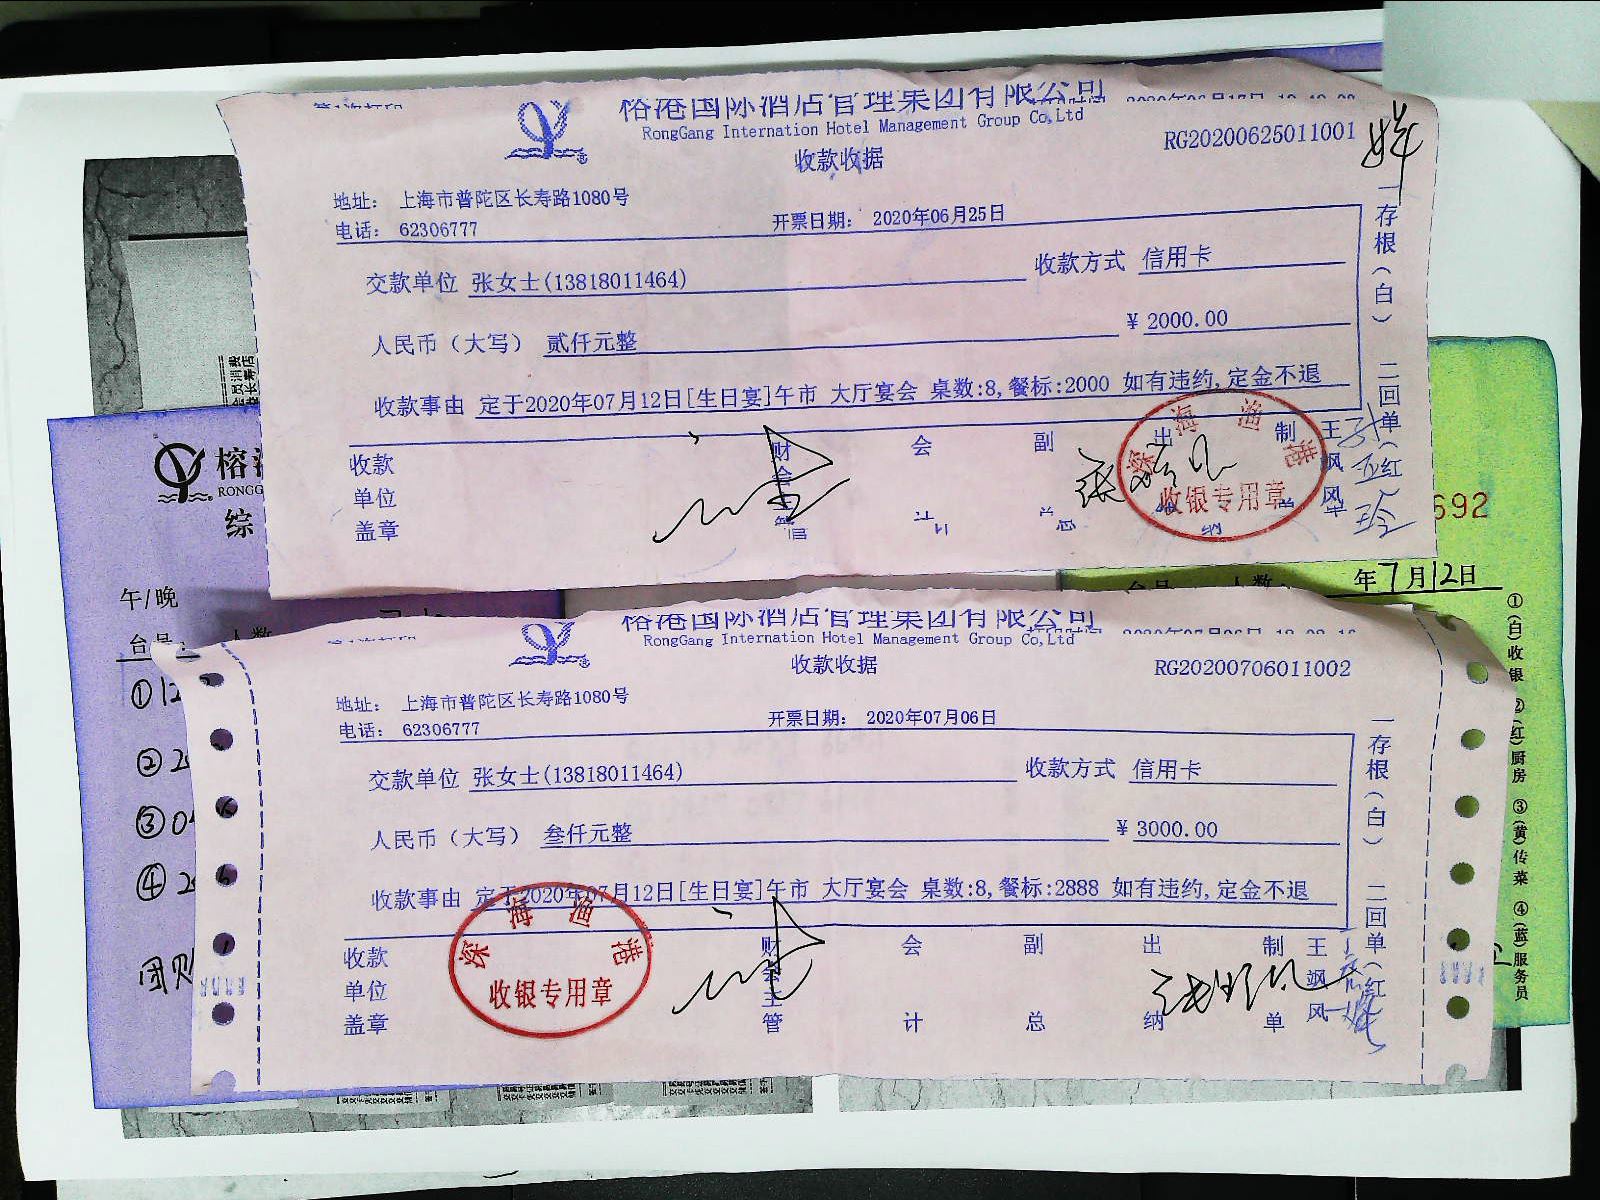 榕港国际酒店管理集团有限公司
RongGang Internation Hotel Management Group Co,Ltd
收款收据
RG20200625011001
地址： 上海市普陀区长寿路1080号
电话： 62306777
开票日期： 2020年06月25日
交款单位 张女士(13818011464)
收款方式 信用卡
人民币（大写） 贰仟元整
¥ 2000.00
收款事由 定于2020年07月12日[生日宴]午市 大厅宴会 桌数:8,餐标:2000 如有违约,定金不退
一存根（白） 二回单（红
收款单位盖章
财会主管
会计
副总
出纳
制单
王飒风
深海渔港
收银专用章
692
年7月12日
榕
RONGG
综
午/晚
台号
人数
榕港国际酒店管理集团有限公司
RongGang Internation Hotel Management Group Co,Ltd
收款收据
RG20200706011002
地址： 上海市普陀区长寿路1080号
电话： 62306777
开票日期： 2020年07月06日
交款单位 张女士(13818011464)
收款方式 信用卡
人民币（大写） 叁仟元整
¥ 3000.00
收款事由 定于2020年07月12日[生日宴]午市 大厅宴会 桌数:8,餐标:2888 如有违约,定金不退
一存根（白） 二回单（红
收款单位盖章
财会主管
会计
副总
出纳
制单
王飒风
深海渔港
收银专用章
①(白)收银 ②(红)厨房 ③(黄)传菜 ④(蓝)服务员